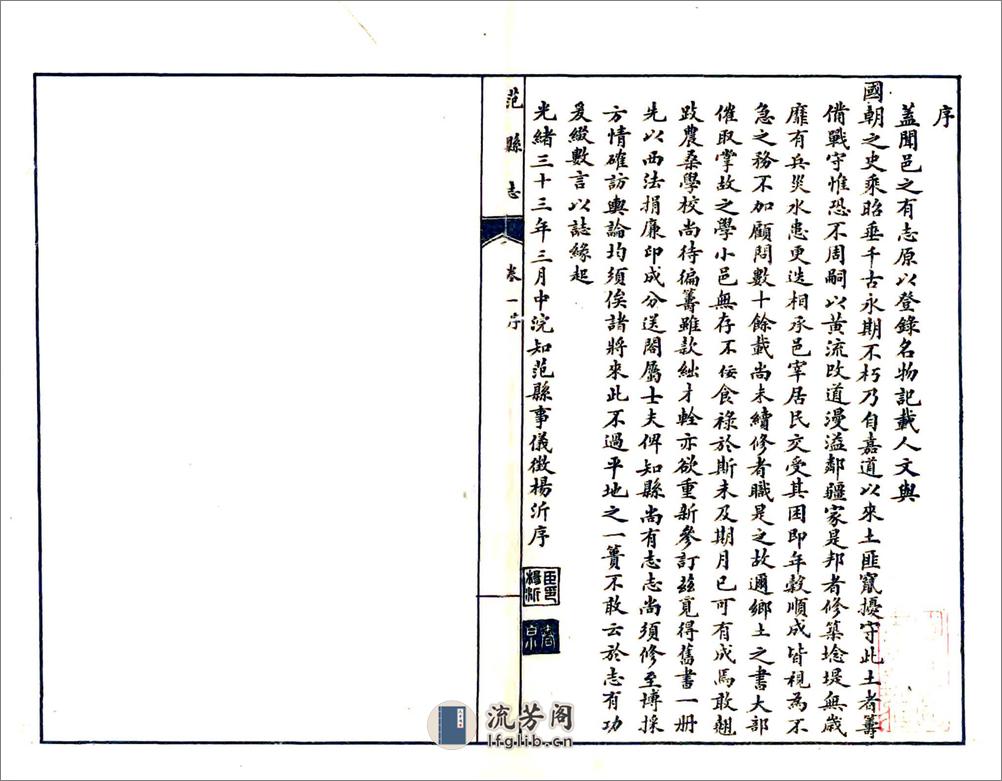 序
蓋聞邑之有志原以登錄名物記載人文與
國朝之史乘昭垂千古永期不朽乃自嘉道以來土匪竄擾守此土者籌
備戰守惟恐不周嗣以黃流改道漫溢鄰疆家是邦者修築埝堤無歲
靡有兵災水患更迭相承邑宰居民交受其困即年穀順成皆視為不
急之務不加顧問數十餘載尚未續修者職是之故邇鄉土之書大部
催取掌故之學小邑無存不佞食祿於斯未及期月已可有成焉敢翹
跂農桑學校尚待徧籌雖款絀才輇亦欲重新參訂茲覓得舊書一册
先以西法捐廉印成分送閤屬士夫俾知縣尚有志志尚須修至博採
方情確訪輿論均須俟諸將來此不過平地之一簣不敢云於志有功
爰綴數言以誌緣起
光緒三十三年三月中浣知范縣事儀徵楊沂序
范縣志
卷一序
流芳阁
lfglib.cn